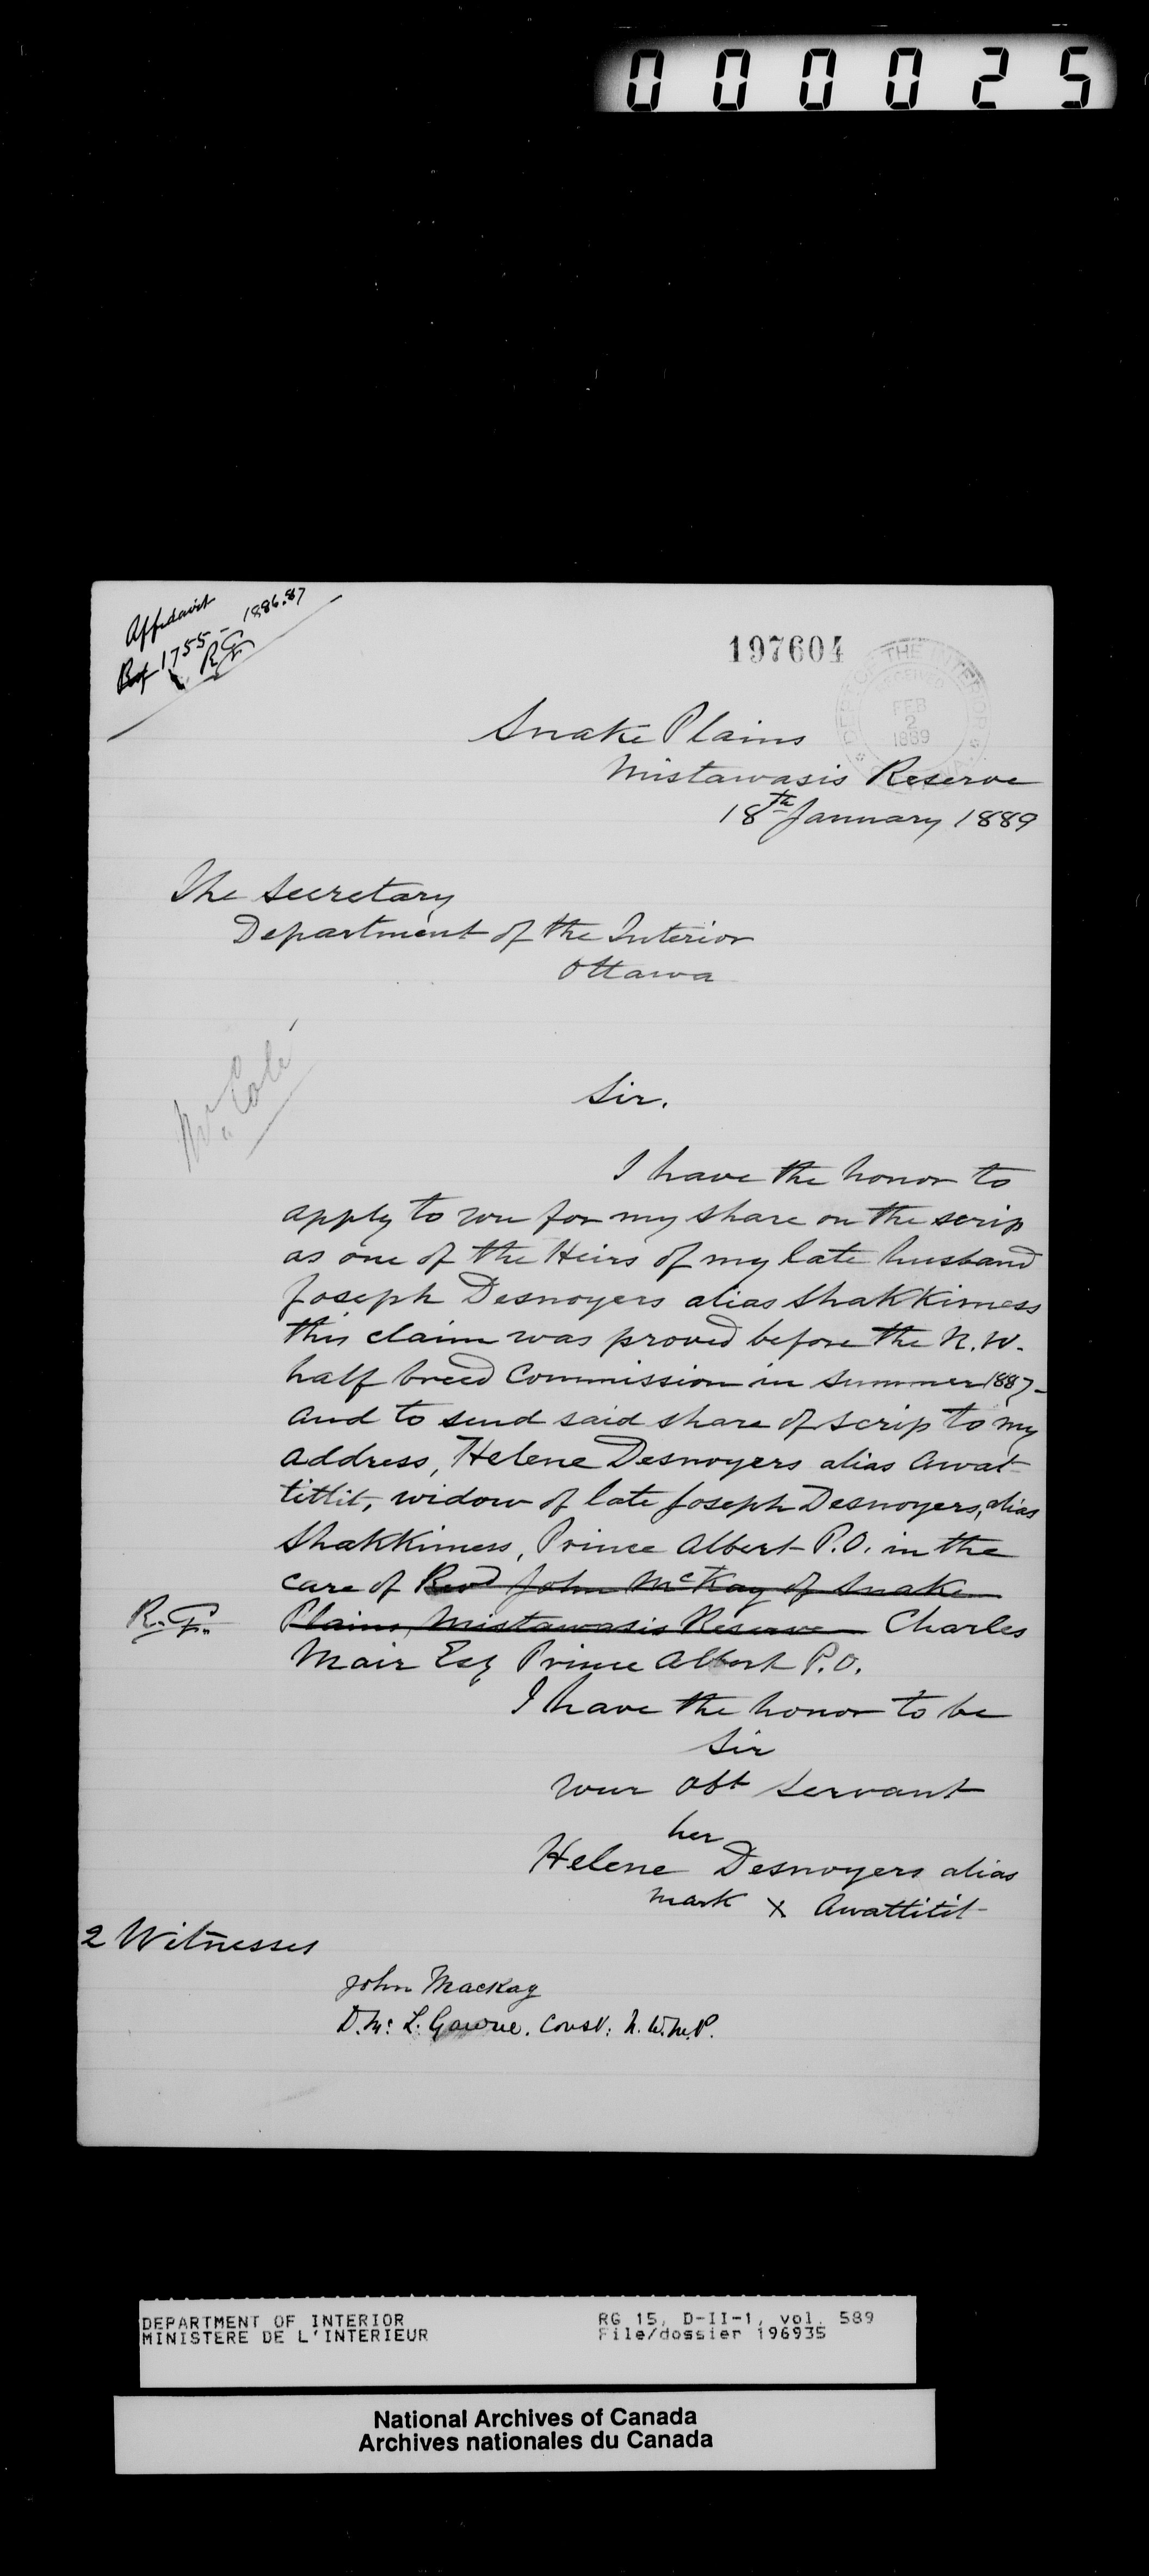 000025
Affidavit
Ref 1755 - 1886.87
R.G.
197604
DEPT OF THE INTERIOR
RECEIVED
FEB
2
1889
Snake Plains
Mistawasis Reserve
18th January 1889
The Secretary
Department of the Interior
Ottawa
Mr. Cole
Sir.
I have the honor to
apply to you for my share on the scrip
as one of the Heirs of my late husband
Joseph Desnoyers alias Shakkimess
this claim was proved before the N.W.
half breed Commission in summer 1887-
and to send said share of scrip to my
address, Helene Desnoyers alias Awat-
tittit, widow of late Joseph Desnoyers, alias
Shakkimess, Prince Albert P.O. in the
care of Revd John McKay of Snake
R.G. Plains, Mistawasis Reserve Charles
Mair Esq Prince Albert P.O.
I have the honor to be
Sir
your obt servant
her
Helene Desnoyers alias
mark X Awattitit-
2 Witnesses
John Mackay
Const: N.W.M.P.
DEPARTMENT OF INTERIOR
MINISTERE DE L'INTERIEUR
RG 15, D-II-1, vol. 589
File/dossier 196935
National Archives of Canada
Archives nationales du Canada